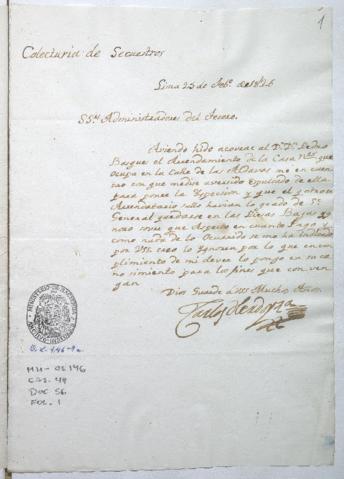 1
Colecturia de Secuestros
Lima 25 de Feb.º de 1826
SS.es Administradores del Tesoro.
Aviendo hido acovrar al D.D. Pedro
el Arrendamiento de la Casa que
ocupa en la Calle de las me en cuen
tro con que medio averido de ella
para poner la y que el
Arrendatario havian Grado de S.r
General quedarse en las Piesas Bajas y
con que Aspecto en cuanto a
como nada de lo Ocurrido se me ha
por VSS. creo lo Ignoren por lo que en cum
plimiento de mi dever lo pongo en su co
nosimiento para los fines que conven
gan
Dios Guarde VSS Muchos Años
Carlos
MINISTERIO DE HACIENDA
O.L. 146-1a
MH-OL146
CAJ. 49
DOC 56
FOL. 1